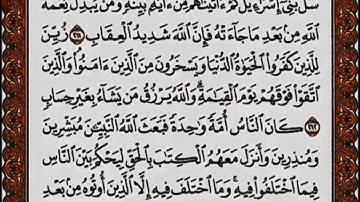 سَلْ بَنِىٓ إِسْرَٰٓءِيلَ كَمْ ءَاتَيْنَٰهُم مِّنْ ءَايَةٍۭ بَيِّنَةٍ ۗ وَمَن يُبَدِّلْ نِعْمَةَ
ٱللَّهِ مِنۢ بَعْدِ مَا جَآءَتْهُ فَإِنَّ ٱللَّهَ شَدِيدُ ٱلْعِقَابِ ٢١١ زُيِّنَ
لِلَّذِينَ كَفَرُوا۟ ٱلْحَيَوٰةُ ٱلدُّنْيَا وَيَسْخَرُونَ مِنَ ٱلَّذِينَ ءَامَنُوا۟ ۘ وَٱلَّذِينَ
ٱتَّقَوْا۟ فَوْقَهُمْ يَوْمَ ٱلْقِيَٰمَةِ ۗ وَٱللَّهُ يَرْزُقُ مَن يَشَآءُ بِغَيْرِ حِسَابٍ
٢١٢ كَانَ ٱلنَّاسُ أُمَّةً وَٰحِدَةً فَبَعَثَ ٱللَّهُ ٱلنَّبِيِّۦنَ مُبَشِّرِينَ
وَمُنذِرِينَ وَأَنزَلَ مَعَهُمُ ٱلْكِتَٰبَ بِٱلْحَقِّ لِيَحْكُمَ بَيْنَ ٱلنَّاسِ
فِيمَا ٱخْتَلَفُوا۟ فِيهِ ۚ وَمَا ٱخْتَلَفَ فِيهِ إِلَّا ٱلَّذِينَ أُوتُوهُ مِنۢ بَعْدِ